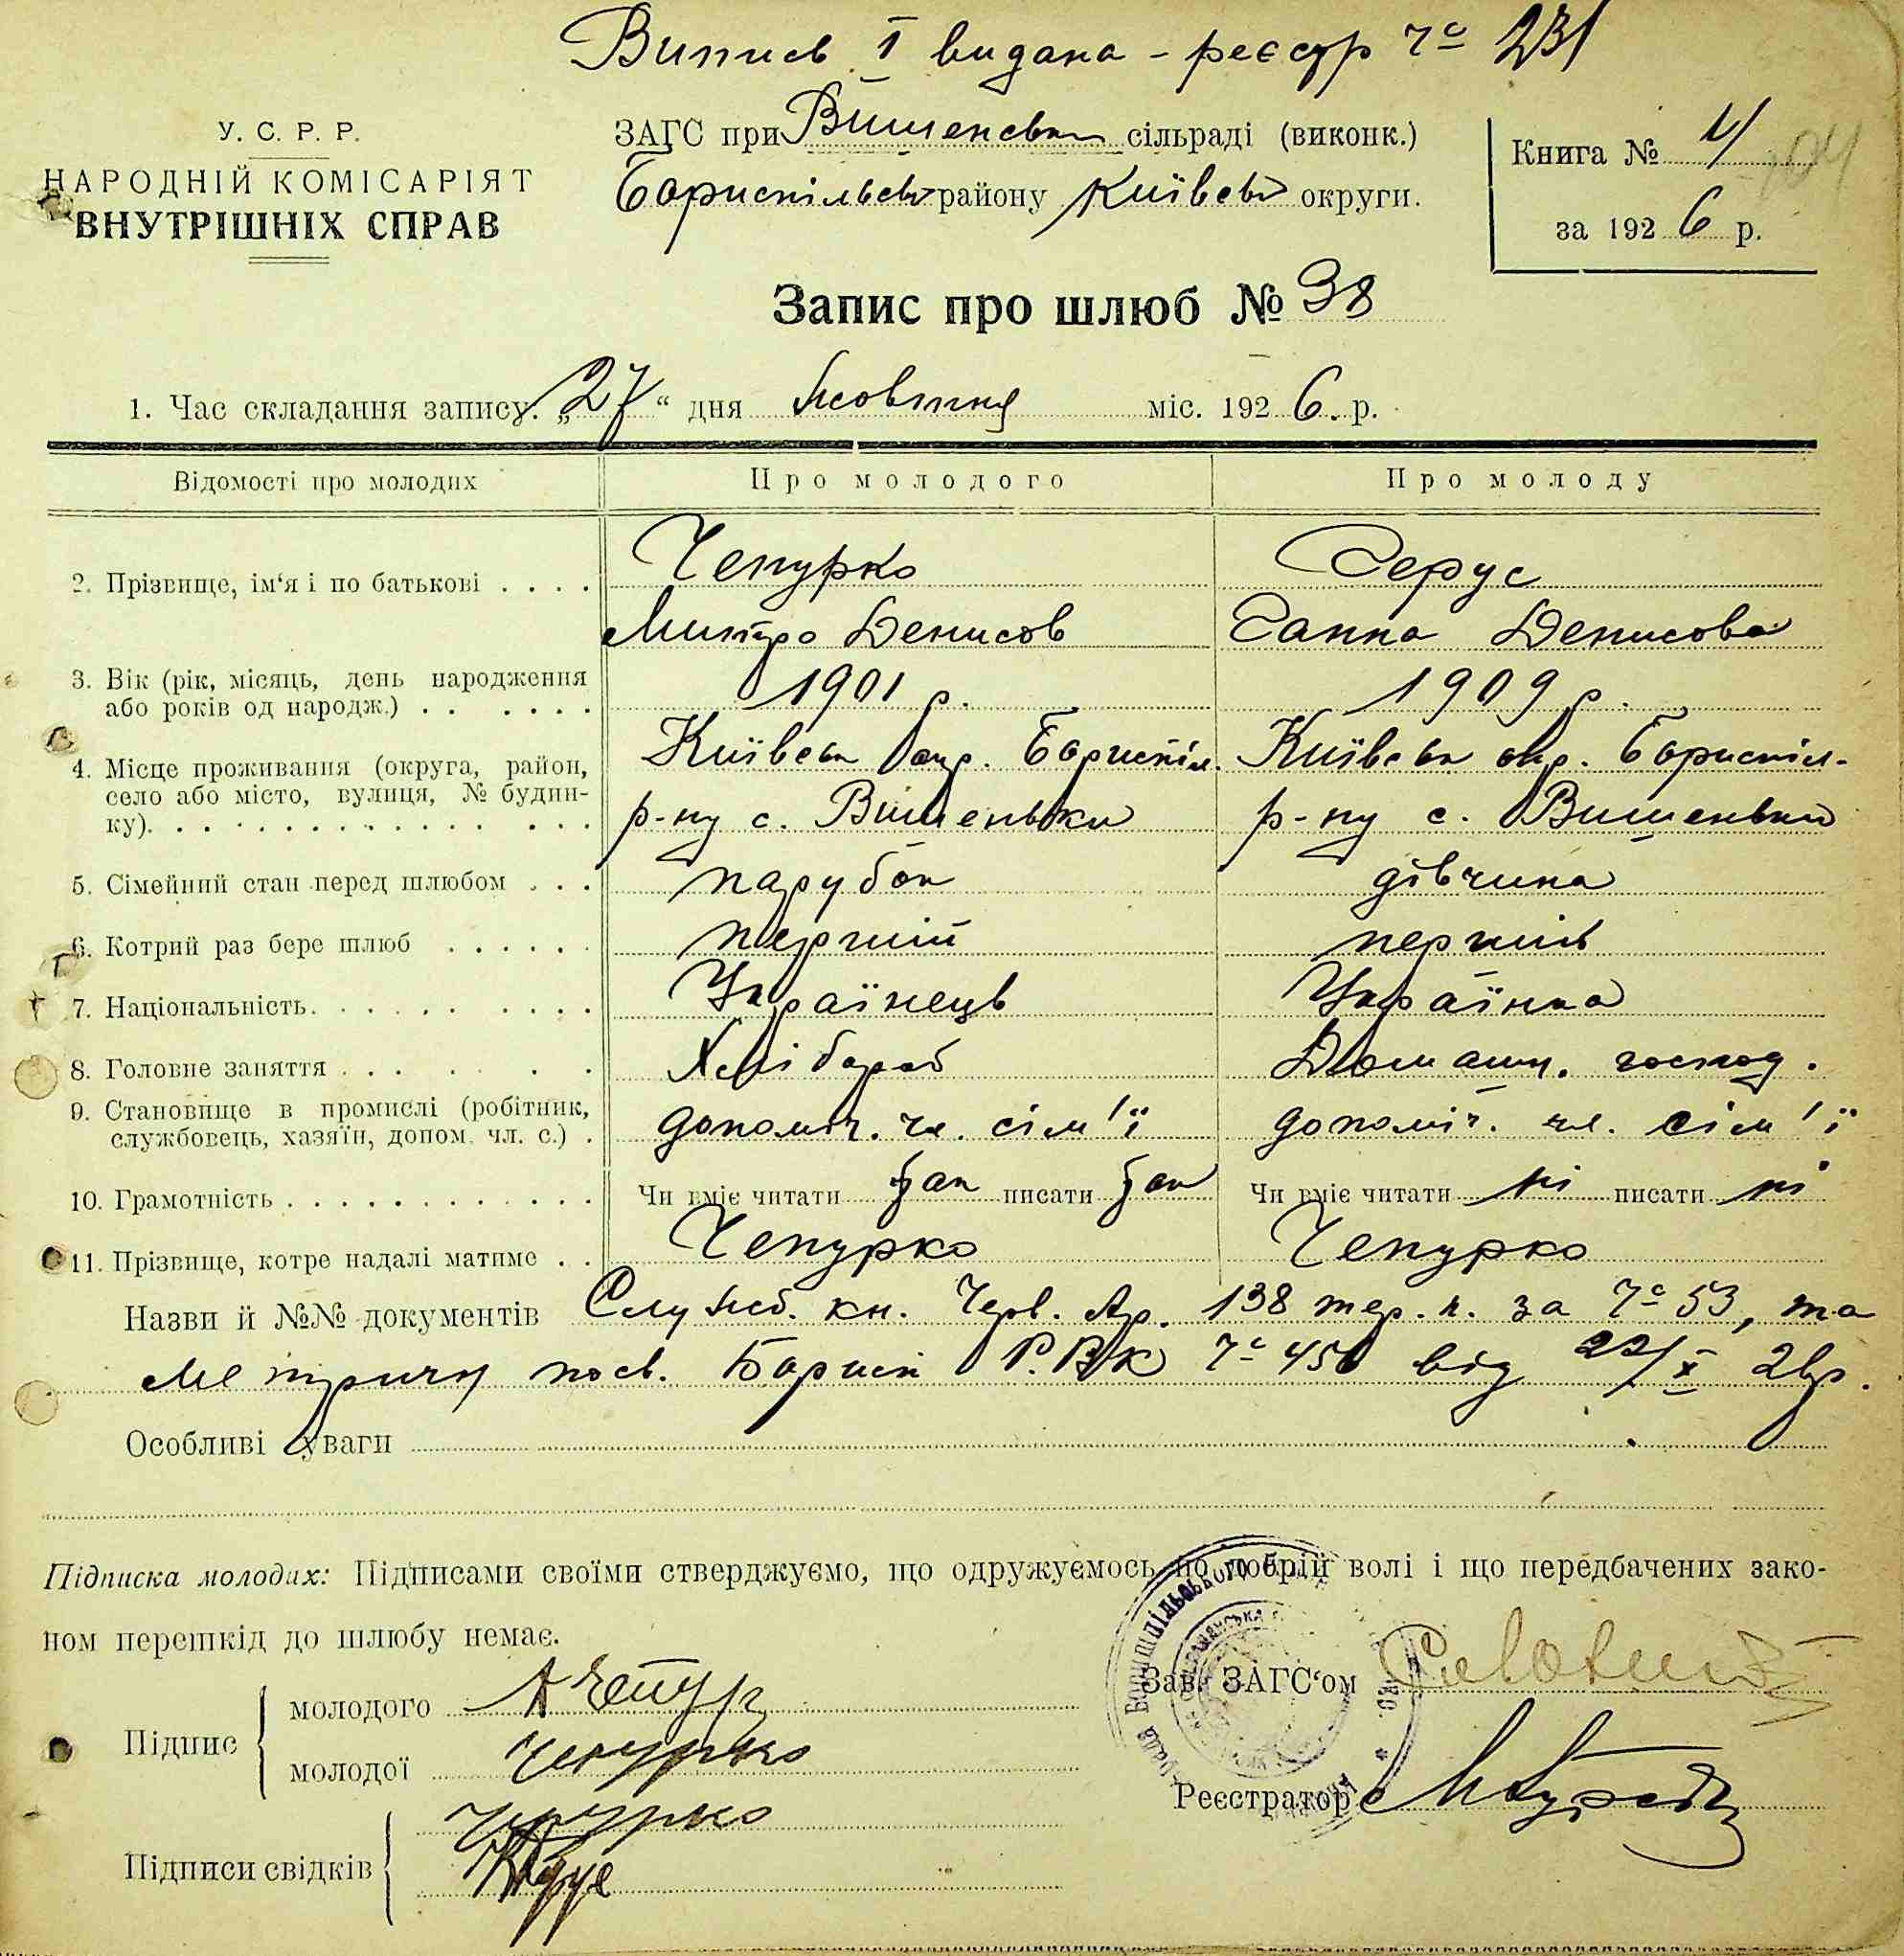 Випись I видана - реєстр ч° 231
У. С. Р. Р.
НАРОДНІЙ КОМІСАРІЯТ
ВНУТРІШНІХ СПРАВ
ЗАГС при Вишенськ сільраді (виконк.)
Бориспільськ району Київськ округи.
Книга №
за 1926 р.
Запис про шлюб № 38
1. Час складання запису. „27“ дня Жовтня міс. 1926. р.
Відомості про молодих Про молодого Про молоду
2. Прізвище, ім‘я і по батькові . . . . Чепурко Серус
Митро Денисов Ганна Денисова
3. Вік (рік, місяць, день народження
або років од народж.) . . . . . . 1901 р. 1909 р.
4. Місце проживання (округа, район, Київськ окр. Бориспіл. Київськ окр. Бориспіл-
село або місто, вулиця, № будин-
ку). р-ну с. Вишеньки р-ну с. Вишеньки
5. Сімейний стан перед шлюбом . . . парубок дівчина
6. Котрий раз бере шлюб . . . . . . перший перший
7. Національність. . . . . . . . . . Українець Українка
8. Головне заняття . . . . . . Хлібороб Домашн. господ.
9. Становище в промислі (робітник,
службовець, хазяїн, допом. чл. с.) . допоміч. чл. сім'ї допоміч. чл. сім'ї
10. Грамотність . . . . . . . . . . . . Чи вміє читати так писати так Чи вміє читати ні писати ні
11. Прізвище, котре надалі матиме . . Чепурко Чепурко
Назви й №№ документів Служб. кн. Черв. Ар. 138 тер. п. за ч° 53, та
Метричн посв. Борисп Р.В.К ч° 450 від 22/X 26р.
Особливі уваги
Підписка молодих: Підписами своїми стверджуємо, що одружуємось по добрій волі і що передбачених зако-
ном перешкід до шлюбу немає.
Зав. ЗАГС‘ом
Підпис
молодого
молодої Чепурко
Реєстратор
Підписи свідків Чепурко